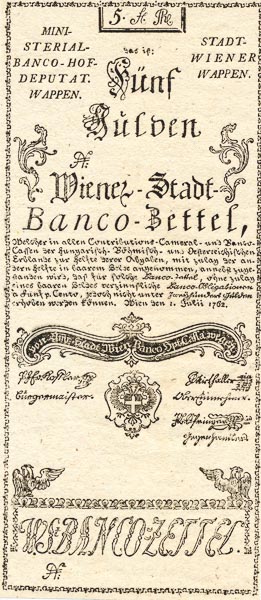 5. fl
MINI-
STERIAL-
BANCO-HOF-
DEPUTAT.
WAPPEN.
STADT-
WIENER
WAPPEN.
das ist:
Fünf
Gulden
Wiener-Stadt-
Banco-Zettel,
Welcher in allen Contributions-Cameral- und Banco-
Cassen der Hungarisch-Böhmisch- und Oesterreichischen
Erblande zur Helfte derer Abgaben, mit zulag der an-
dern Helfte in baarem Geld angenommen, annebst zuge-
standen wird, daß für solche Banco-Zettel, ohne zulag
eines baaren Geldes verzinsliche Banco-Obligationen
à Fünf p. Cento, jedoch nicht unter Gulden
erhoben werden können. Wien den 1. Julii 1762.
Wien Banco
Burgermeister.
Ober Einnehmer.
WS BANCO-ZETTEL.